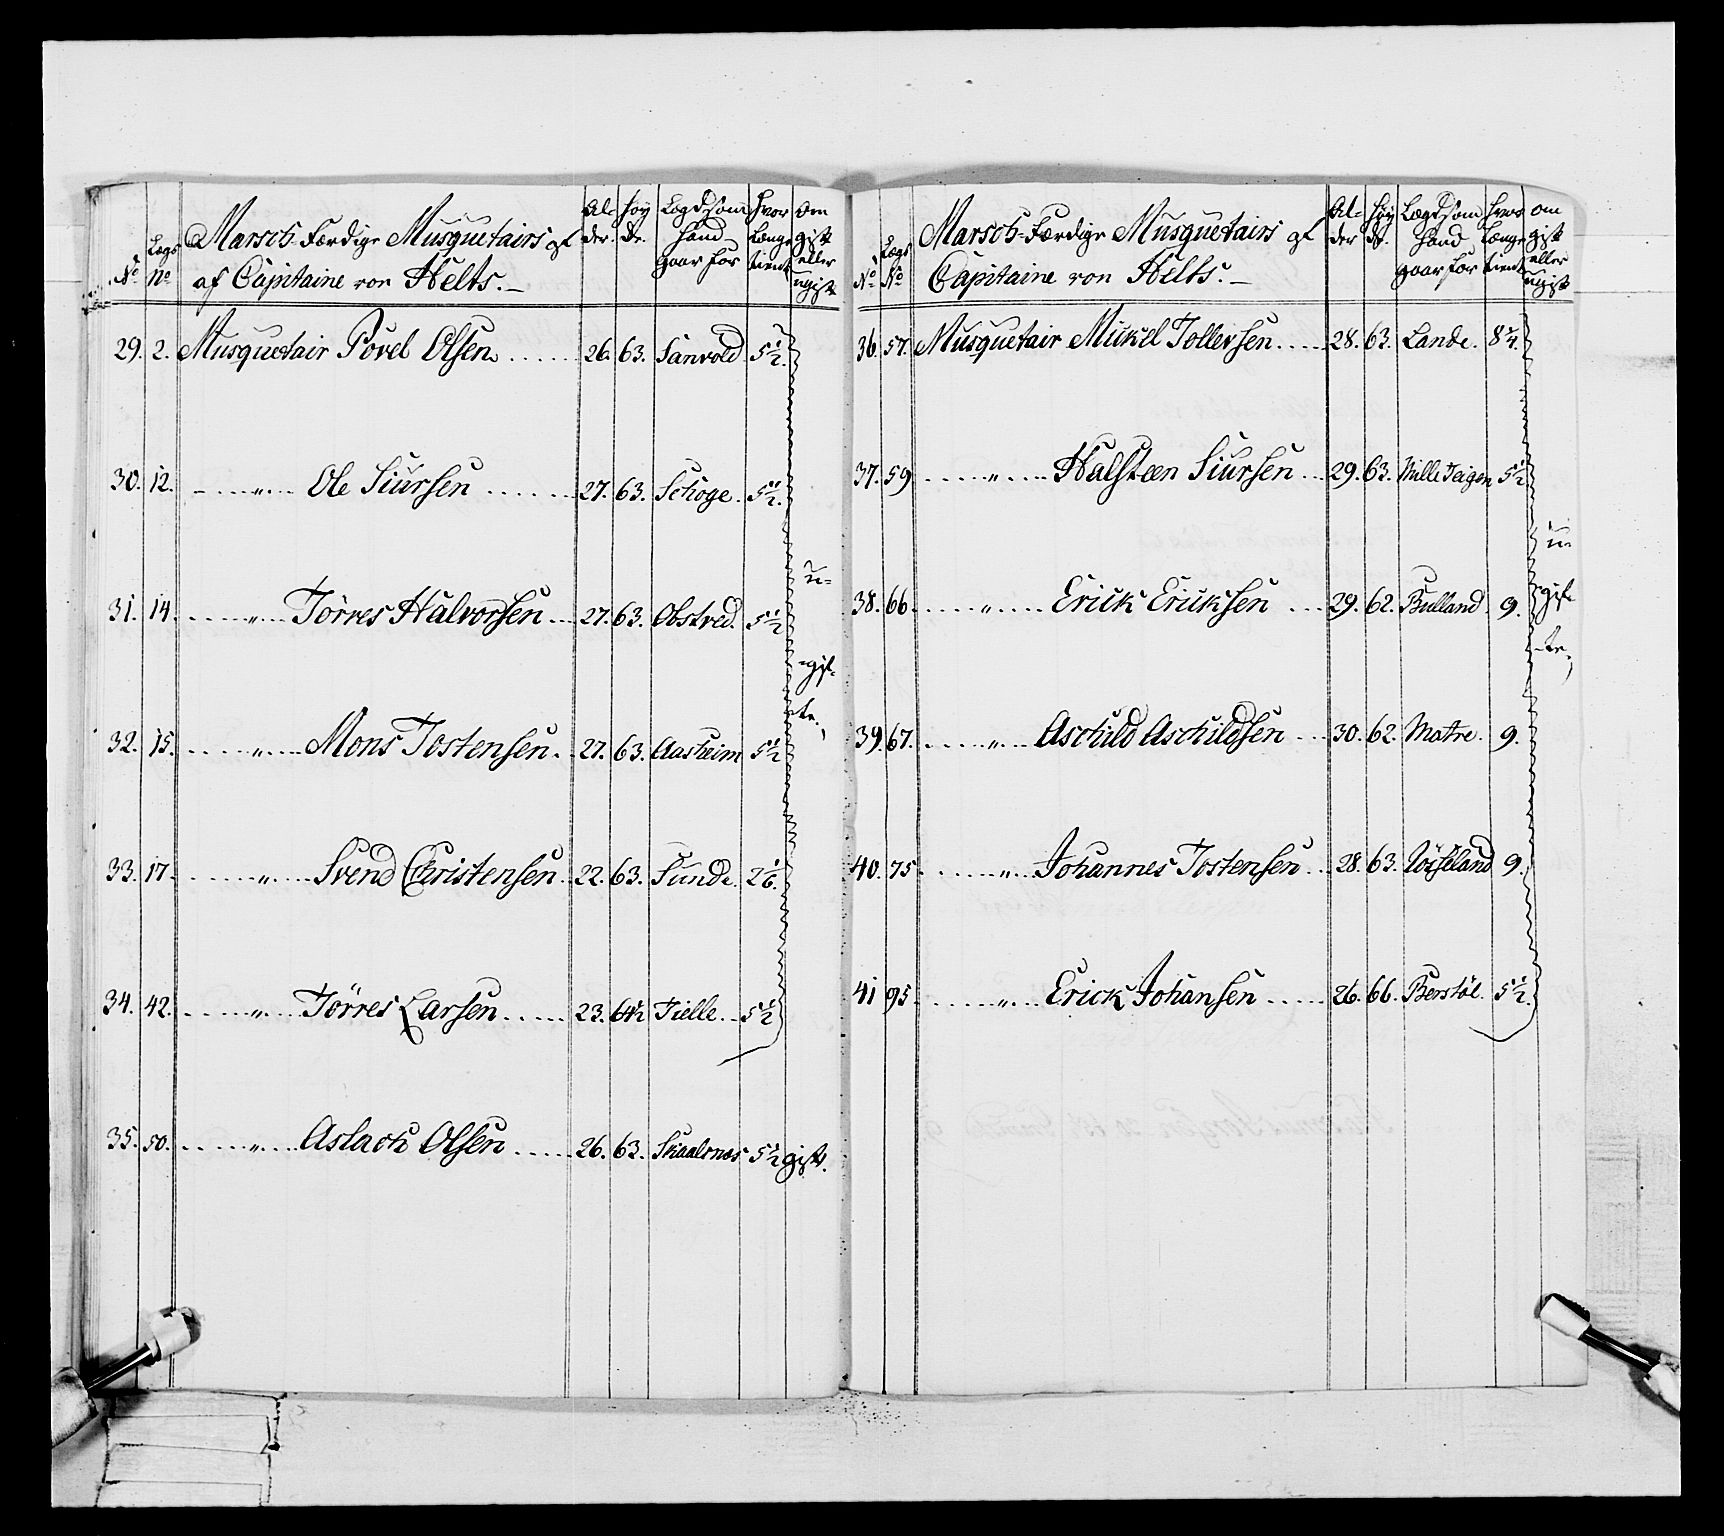 No Lægs No Marsch-Færdige Musquetairs af af Capitaine von Helts. Al-der. Høyde. Lægd som hand gaar for hvor længe tient om gift eller ugift
29. 2. Musquetair Povel Olsen 26. 63. Sanvold 5 1/2.
30. 12. " Ole Siursen 27. 63. Schoge. 5 1/2.
31. 14. " Törres Halvorsen 27. 63. Obstved. 5 1/2
32. 15. " Mons Tostensen 27. 63. Aasheim 5 1/2
33. 17. " Svend Christensen 22. 63. Sunde. 2 1/6.
34. 42. " Törres Larsen 23. 64 1/2 Tielle 5 1/2
u-
gif-
te.
35. 50. " Aslach Olsen 26. 63. Skaalsnæs 5 1/2 gift.
No Lægs No Marsch-Færdige Musquetairs af Capitaine von Helts. Al-der Høyde. Lægd som hand gaar for hvor længe tient om gift eller ugift
36. 57. Musquetair Mickel Tollevsen 28. 63. Lande. 8 1/4.
37. 59 " Halsteen Siursen 29. 63. Mille Teigen 5 1/2
38. 66. " Erick Ericksen 29. 62. Bulland. 9.
39 67. " Aschild Aschildsen 30. 62. Matre. 9.
40. 75 " Johannes Tostensen 28. 63. 9.
41 95. " Erick Johansen 26. 66. Berstöl. 5 1/2.
u-
gif-
te.